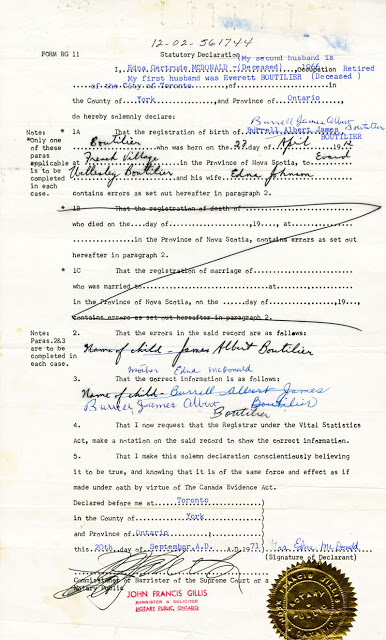 12-02-561744
FORM RG 11 Statutory Declaration
(My second husband is
I, Edna Gertrude MCDONALD (Deceased) 1966 Occupation Retired
My first husband was Everett BOUTILIER (Deceased )
of the City of Toronto of in
the County of York and Province of Ontario
do hereby solemnly declare:
Burrell James Albert
Note: * 1A That the registration of birth of Burrell Albert James Boutilier
BOUTILIER
*Only one Boutilier who was born on the 27 day of April 19
of these
paras French Village
applicable at in the Province of Nova Scotia, to
is to be Wellesley Boutilier and his wife Edna Johnson
completed
in each contains errors as set out hereafter in paragraph 2.
case.
* 1B That the registration of death of
who died on the day of 19 , at
in the Province of Nova Scotia, contains errors as set out
hereafter in paragraph 2.
* 1C That the registration of marriage of
who was married to at
in the Province of Nova Scotia, on the day of 19
contains errors as set out hereafter in paragraph 2.
Note: 2. That the errors in the said record are as follows:
Paras.2&3
are to be Name of child - James Albert Boutilier
completed in
each case. mother Edna McDonald
3. That the correct information is as follows:
Name of child - Burrell Albert James
Burrell James Albert Boutilier
Boutilier
4. That I now request that the Registrar under the Vital Statistics
Act, make a notation on the said record to show the correct information.
5. That I make this solemn declaration conscientiously believing
it to be true, and knowing that it is of the same force and effect as if
made under oath by virtue of The Canada Evidence Act.
Declared before me at Toronto )
in the County of York )
and Province of Ontario )
this 20th day of September A.D. A.D.19 73 ) Mrs Edna McDonald
(Signature of Declarant)
Commissioner or Barrister of the Supreme Court or a
Notary Public
JOHN FRANCIS GILLIS
BARRISTER & SOLICITOR
NOTARY PUBLIC, ONTARIO
FRANCIS GILLIS
NOTARY
PUBLIC